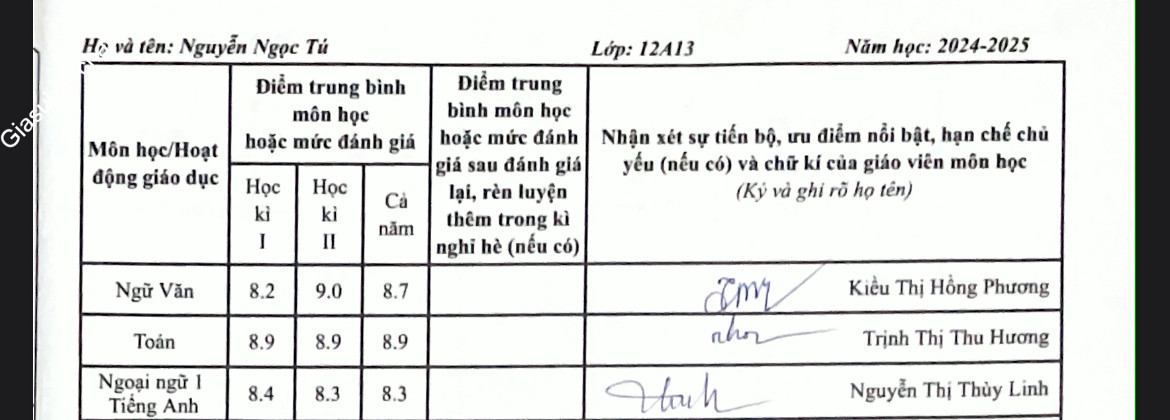 Họ và tên: Nguyễn Ngọc Tú Lớp: 12A13 Năm học: 2024-2025
Môn học/Hoạt
động giáo dục
Điểm trung bình
môn học
hoặc mức đánh giá
Học
kì
I
Học
kì
II
Cả
năm
Điểm trung
bình môn học
hoặc mức đánh
giá sau đánh giá
lại, rèn luyện
thêm trong kì
nghỉ hè (nếu có)
Nhận xét sự tiến bộ, ưu điểm nổi bật, hạn chế chủ
yếu (nếu có) và chữ kí của giáo viên môn học
(Ký và ghi rõ họ tên)
Ngữ Văn 8.2 9.0 8.7 Kiều Thị Hồng Phương
Toán 8.9 8.9 8.9 Trịnh Thị Thu Hương
Ngoại ngữ 1
Tiếng Anh
8.4 8.3 8.3 Nguyễn Thị Thùy Linh